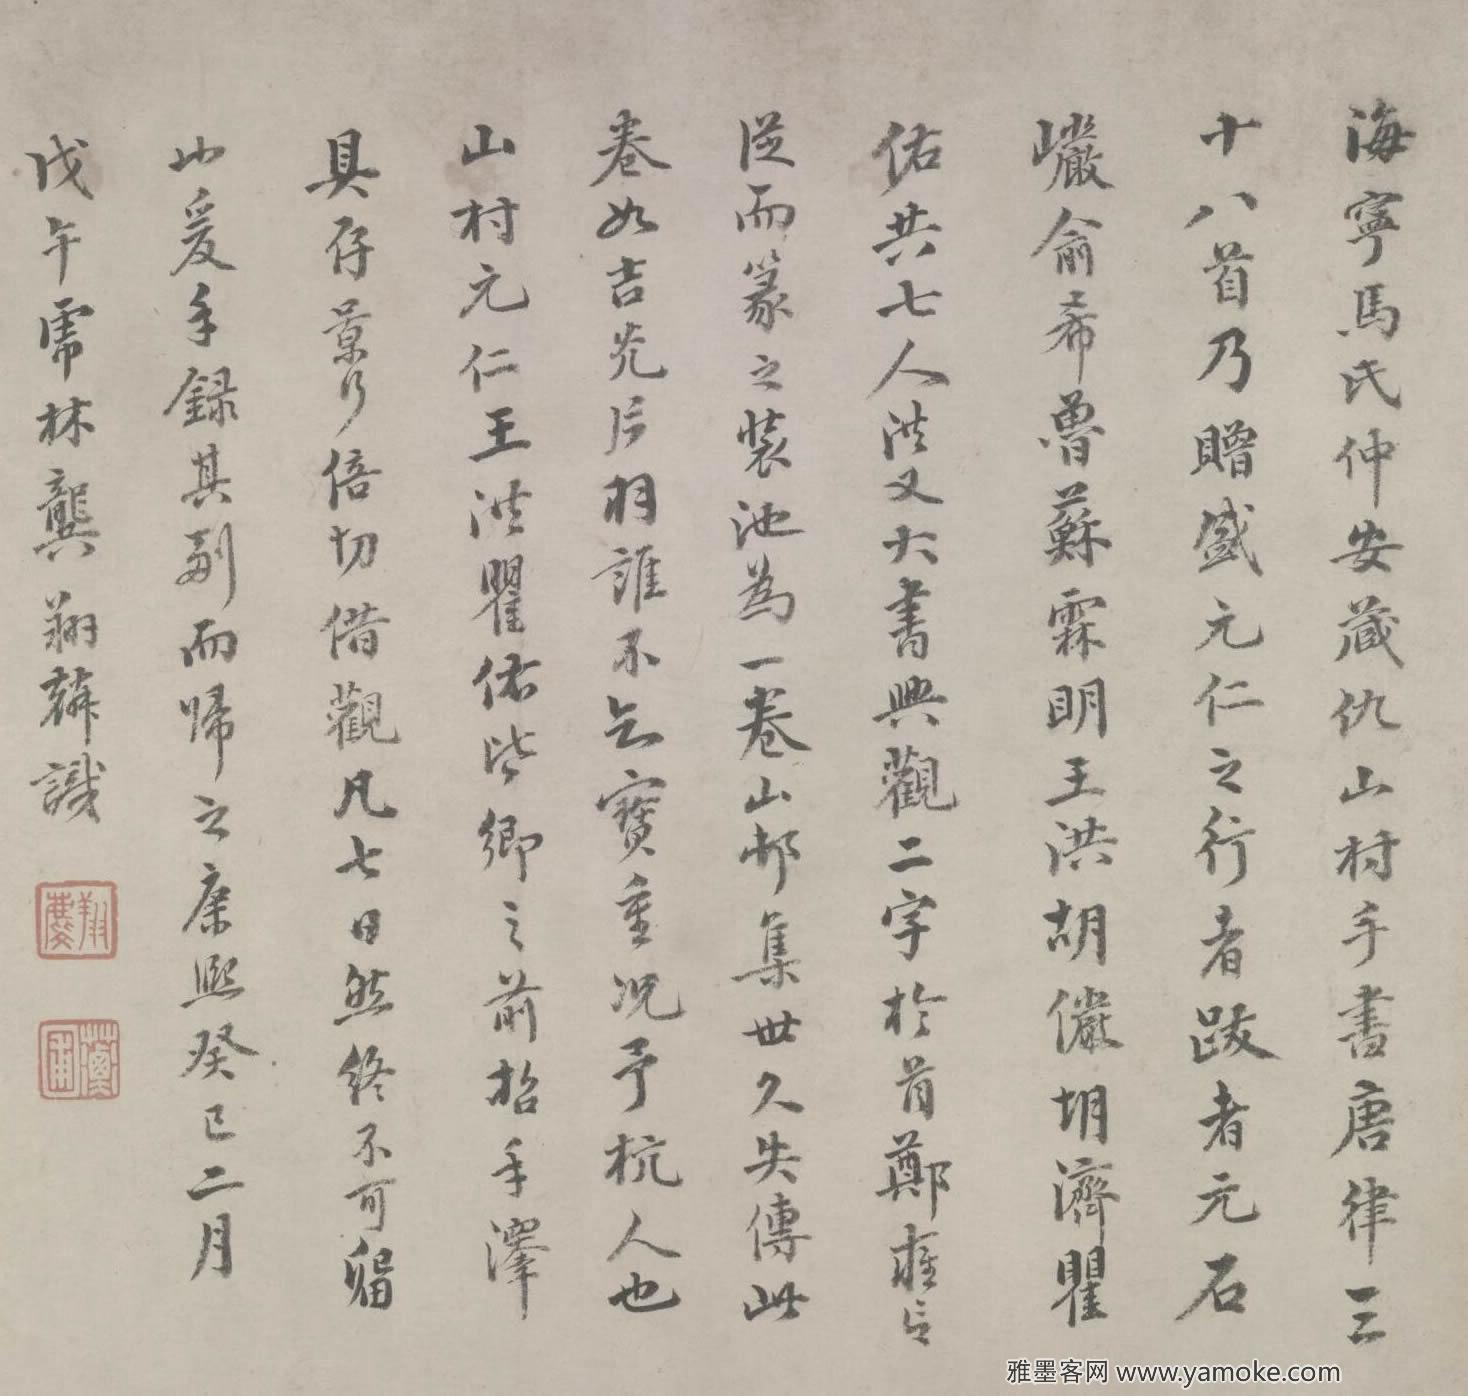 海寧馬氏仲安藏仇山村手書唐律三
十八首乃贈盛元仁之行者跋者元石
巖俞希魯蘇霖明王洪胡儼胡濟瞿
佑共七人洪又大書興觀二字於首鄭雍言
從而篆之裝池為一卷山邨集世久失傳此
卷如吉光片羽誰不知寶重況予杭人也
山村元仁王洪瞿佑皆鄉之前招手澤
具存景行倍切借觀凡七日然終不可留
也爰手錄其副而歸之康熙癸巳二月
戊午虎林龔翔麟識
雅墨客网 www.yamoke.com